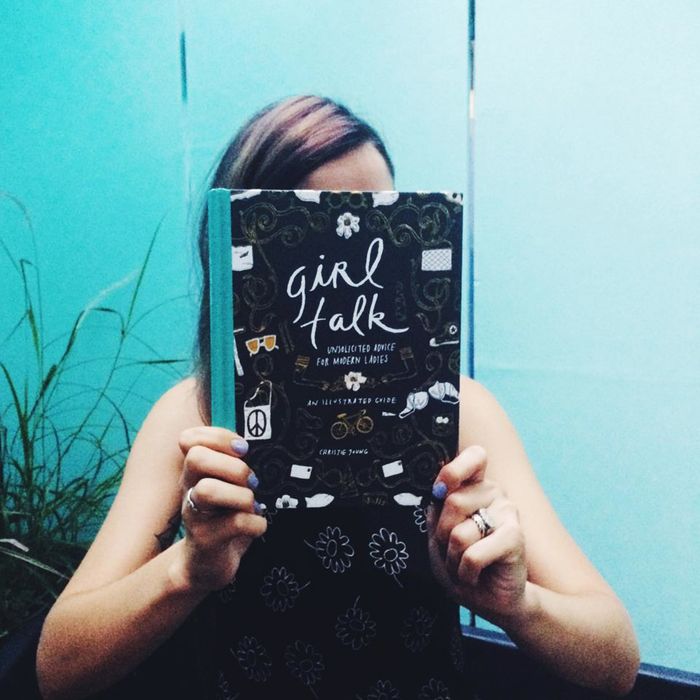 girl
talk
UNSOLICITED ADVICE
FOR MODERN LADIES
AN ILLUSTRATED GUIDE
CHRISTIE YOUNG